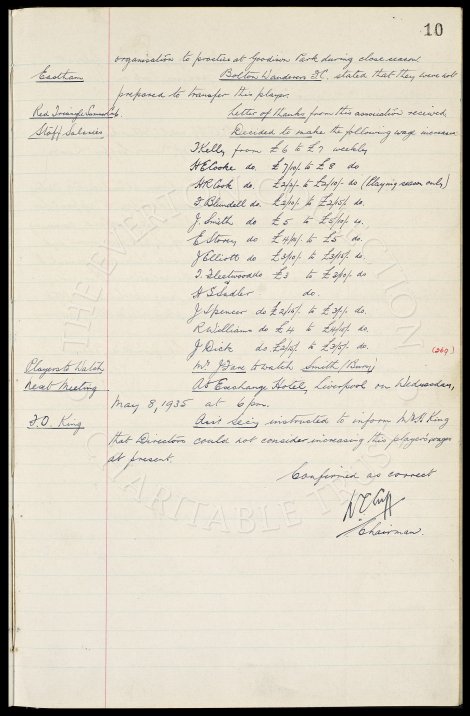 10
organisation to practice at Goodison Park during close season.
Eastham Bolton Wanderers F.C. stated that they were not
prepared to transfer this player.
Red Triangle Letter of thanks from this association received.
Staff Salaries Decided to make the following wage increases
T Kelly from £6 to £7 weekly
H E Cooke do. £7/10/- to £8 do
H R Cook do £2/2/- to £2/10/- do (Playing season only)
F. Blundell do. £2/10/- to £2/15/- do.
J. Smith do £5 to £5/10/- do.
E Storey do £4/10/- to £5 do.
J Elliott do £3/10/- to £3/15/- do.
T. Fleetwood do £3 to £3/10/- do
H G Sadler do.
J Spencer do £2/15/- to £3/-/- do.
R Williams do £4 to £4/10/- do.
J Dick do £2/15/- to £3/5/- do.
(267)
Players to Watch Mr. J Fare to watch Smith (Bury)
Next Meeting At Exchange Hotel, Liverpool on Wednesday,
May 8, 1935 at 6 p.m.
F. O. King Asst Secy instructed to inform Mr King
that Directors could not consider increasing this player's wages
at present.
Confirmed as correct
W. C. Cuff
Chairman.
THE EVERTON COLLECTION
CHARITABLE TRUST